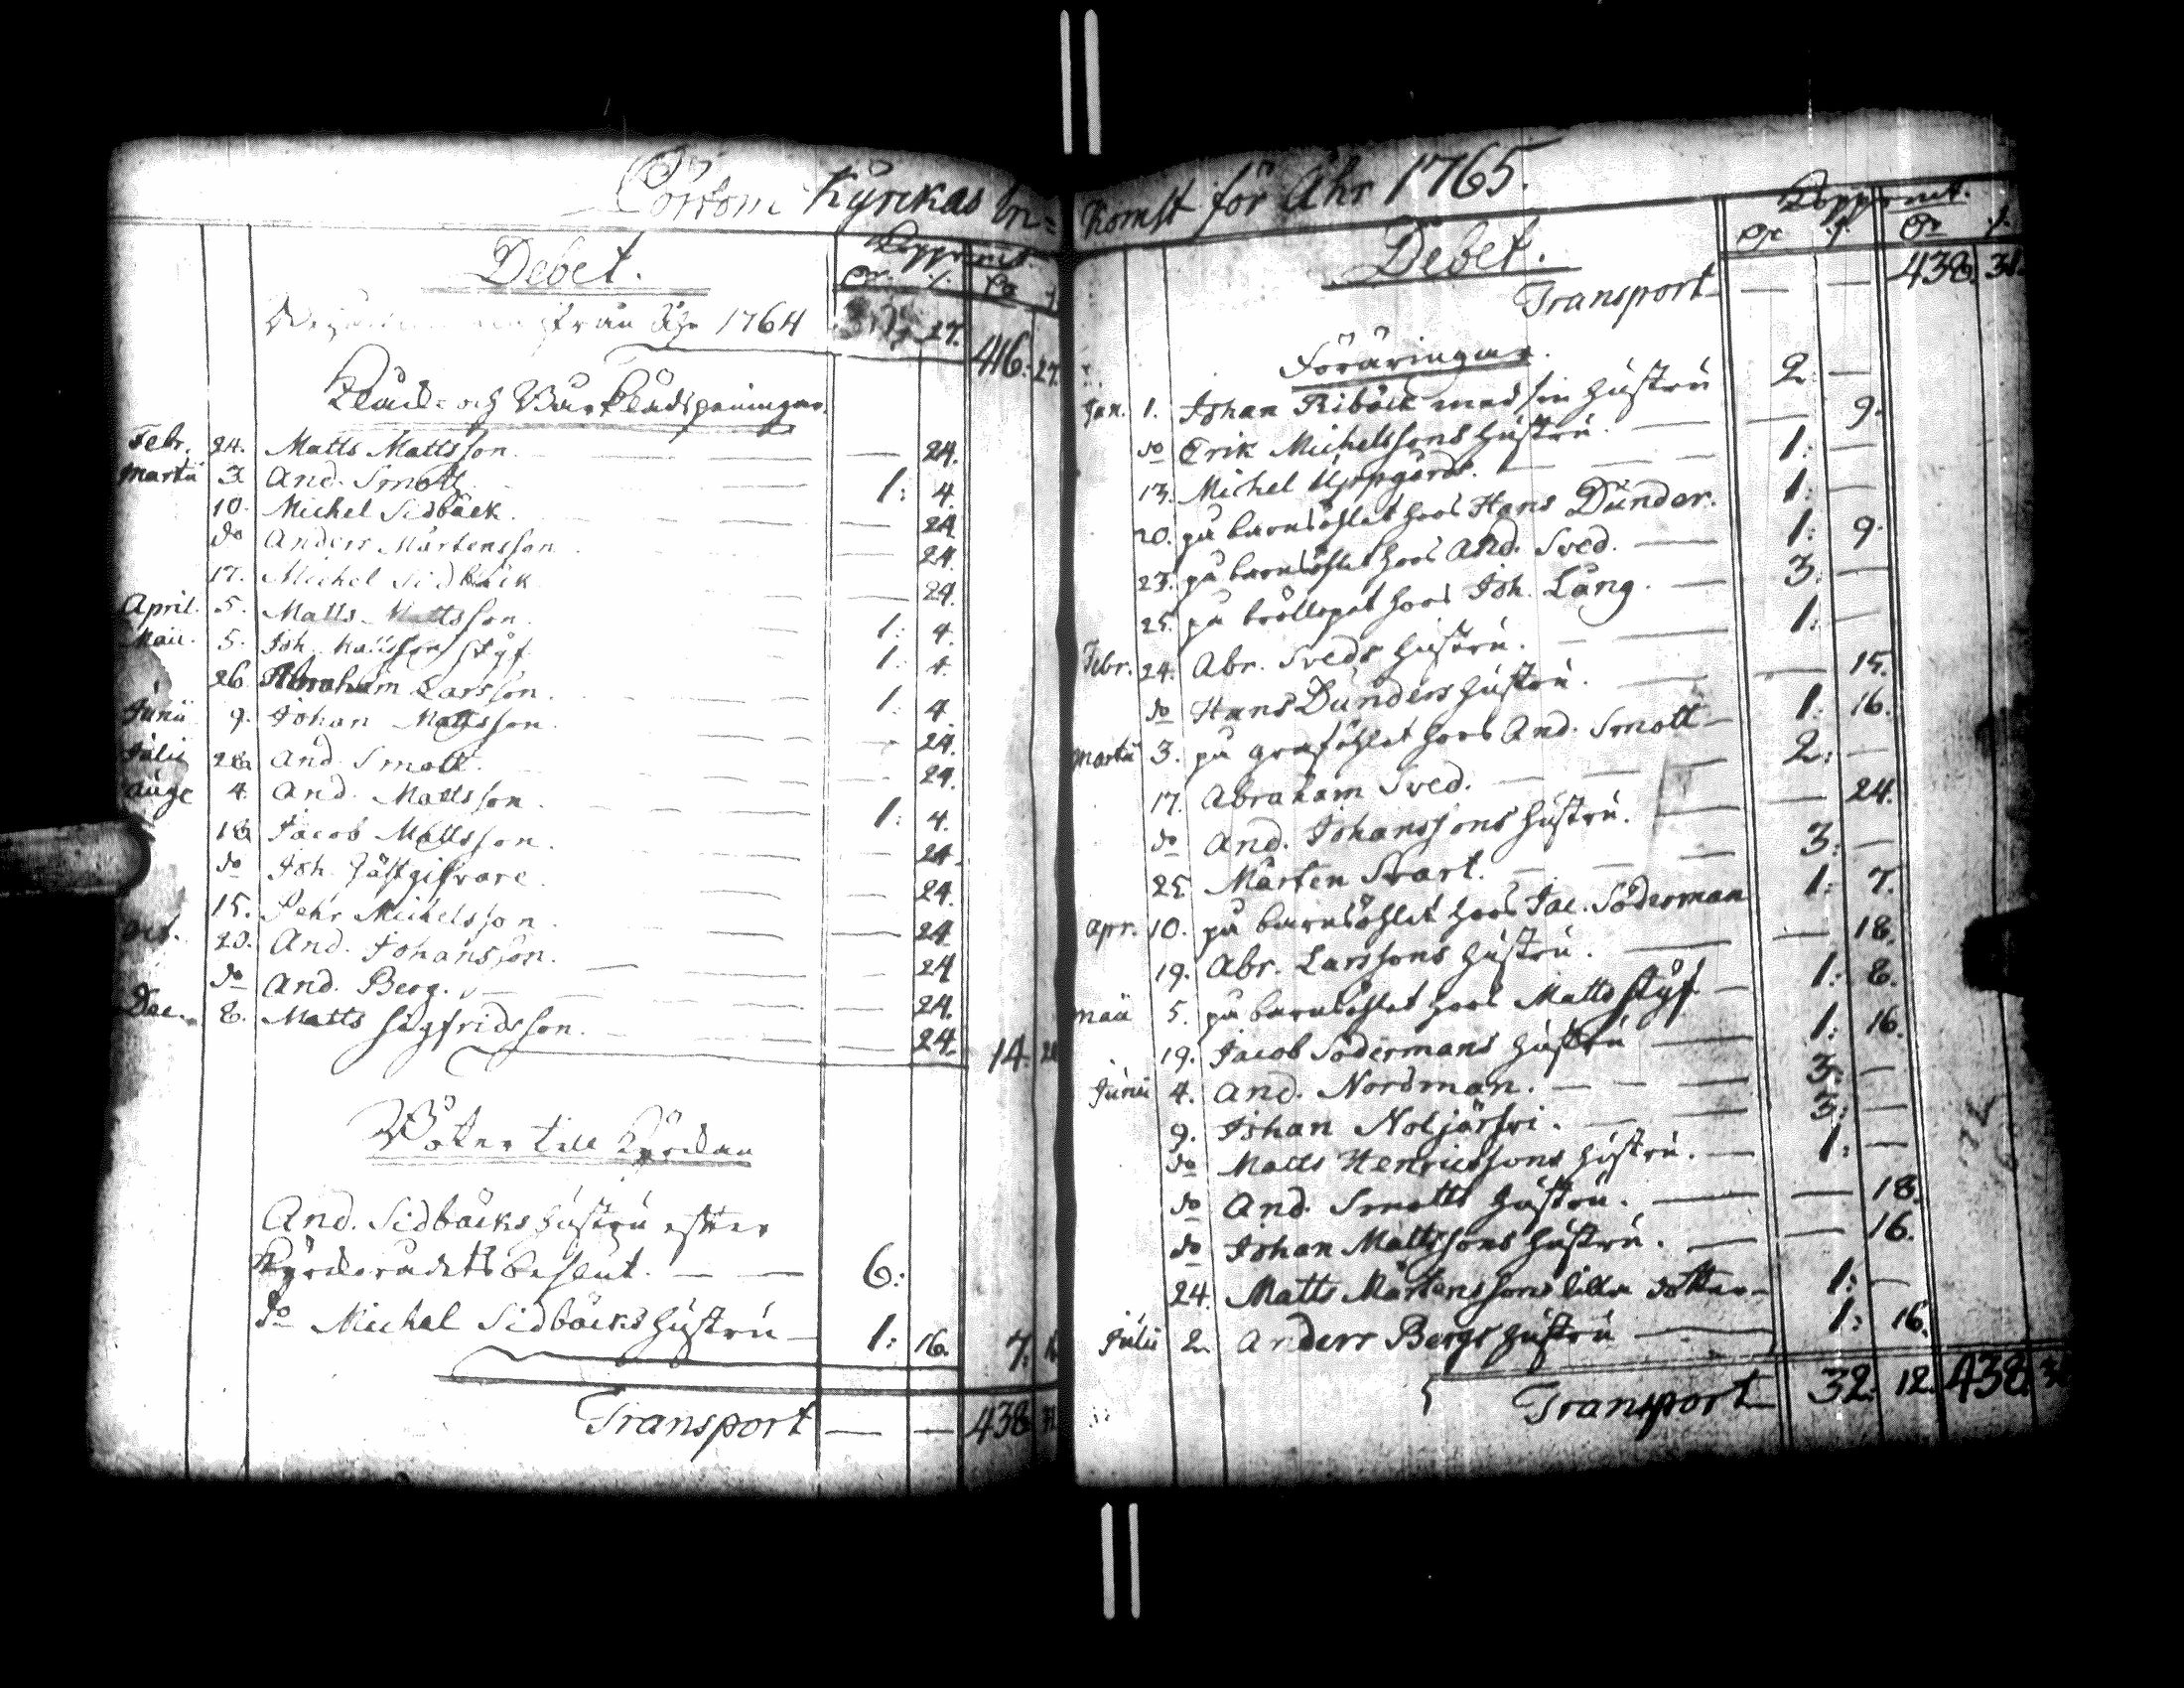 Pörtom Kyrckas In=
Debet.
Koppmt.
från Åhr 1764 27. 416: 27.
Kläde= och Bårklädspeningar.
Febr. 24. Matts Mattsson. — — 24.
Martii 3. And. Smott. — 1: 4.
10. Michel Sidbäck. — — 24.
do Anders Mårtensson. — — 24.
17. Michel Sidbäck — — 24.
April. 5. Matts Mattsson. — 1: 4.
Maii. 5. Joh. Mattsson Styf. — 1: 4.
26. Abraham Larsson. — 1: 4.
Junii 9. Johan Mattsson. — — 24.
Julii 28. And. Smott. — — 24.
Aug. 4. And. Mattsson. — 1: 4.
18. Jacob Mattsson. — — 24.
do Joh. Gästgifvare. — — 24.
15. Pehr Michelsson. — — 24.
Oct. 20. And. Johansson. — — 24.
do And. Berg. — — 24.
Dec. 8. Matts Sigfridsson. — — 24. 14:
till Kyrckan
And. Sidbäcks hustru efter
Kyrckorådets beslut. — — 6:
do Michel Sidbäcks hustru — 1: 16. 7:
Transport — — 438
Komst för Åhr 1765.
Debet.
Koppmt.
Transport — — 438. 31.
Föräringar.
Jan. 1. Johan Ribäck med sin hustru 2. —
do Erik Michelssons hustru. — — 9.
13. Michel Uppgård. — 1: —
20. på barnsöhlet hos Hans Dunder. 1: —
23. på barnsöhlet hos And. Sved. — 1: 9.
25. på bröllopet hos Joh. Lång. — 3: —
Febr. 24. Abr. Sveds hustru. — 1: —
do Hans Dunders hustru. — — 15.
Martii 3. på grafsöhlet hos And. Smott — 1: 16.
17. Abraham Sved. — 2: —
do And. Johanssons hustru. — — 24.
25. Mårten Svart. — 3: —
Apr. 10. på barnsöhlet hos Jac. Söderman 1: 7.
19. Abr. Larssons hustru. — — 18.
Maii 5. på barnsöhlet hos Matts Styf — 1: 8.
19. Jacob Södermans hustru — 1: 16.
Junii 4. And. Nordman. — 3: —
9. Johan Noljärfvi. — 3: —
do Matts Henricssons hustru. — 1: —
do And. Smotts hustru. — — 18.
do Johan Mattssons hustru. — — 16.
24. Matts Mårtenssons lilla dotter — 1: —
Julii 2. Anders Bergs hustru — 1: 16.
Transport 32: 12. 438.